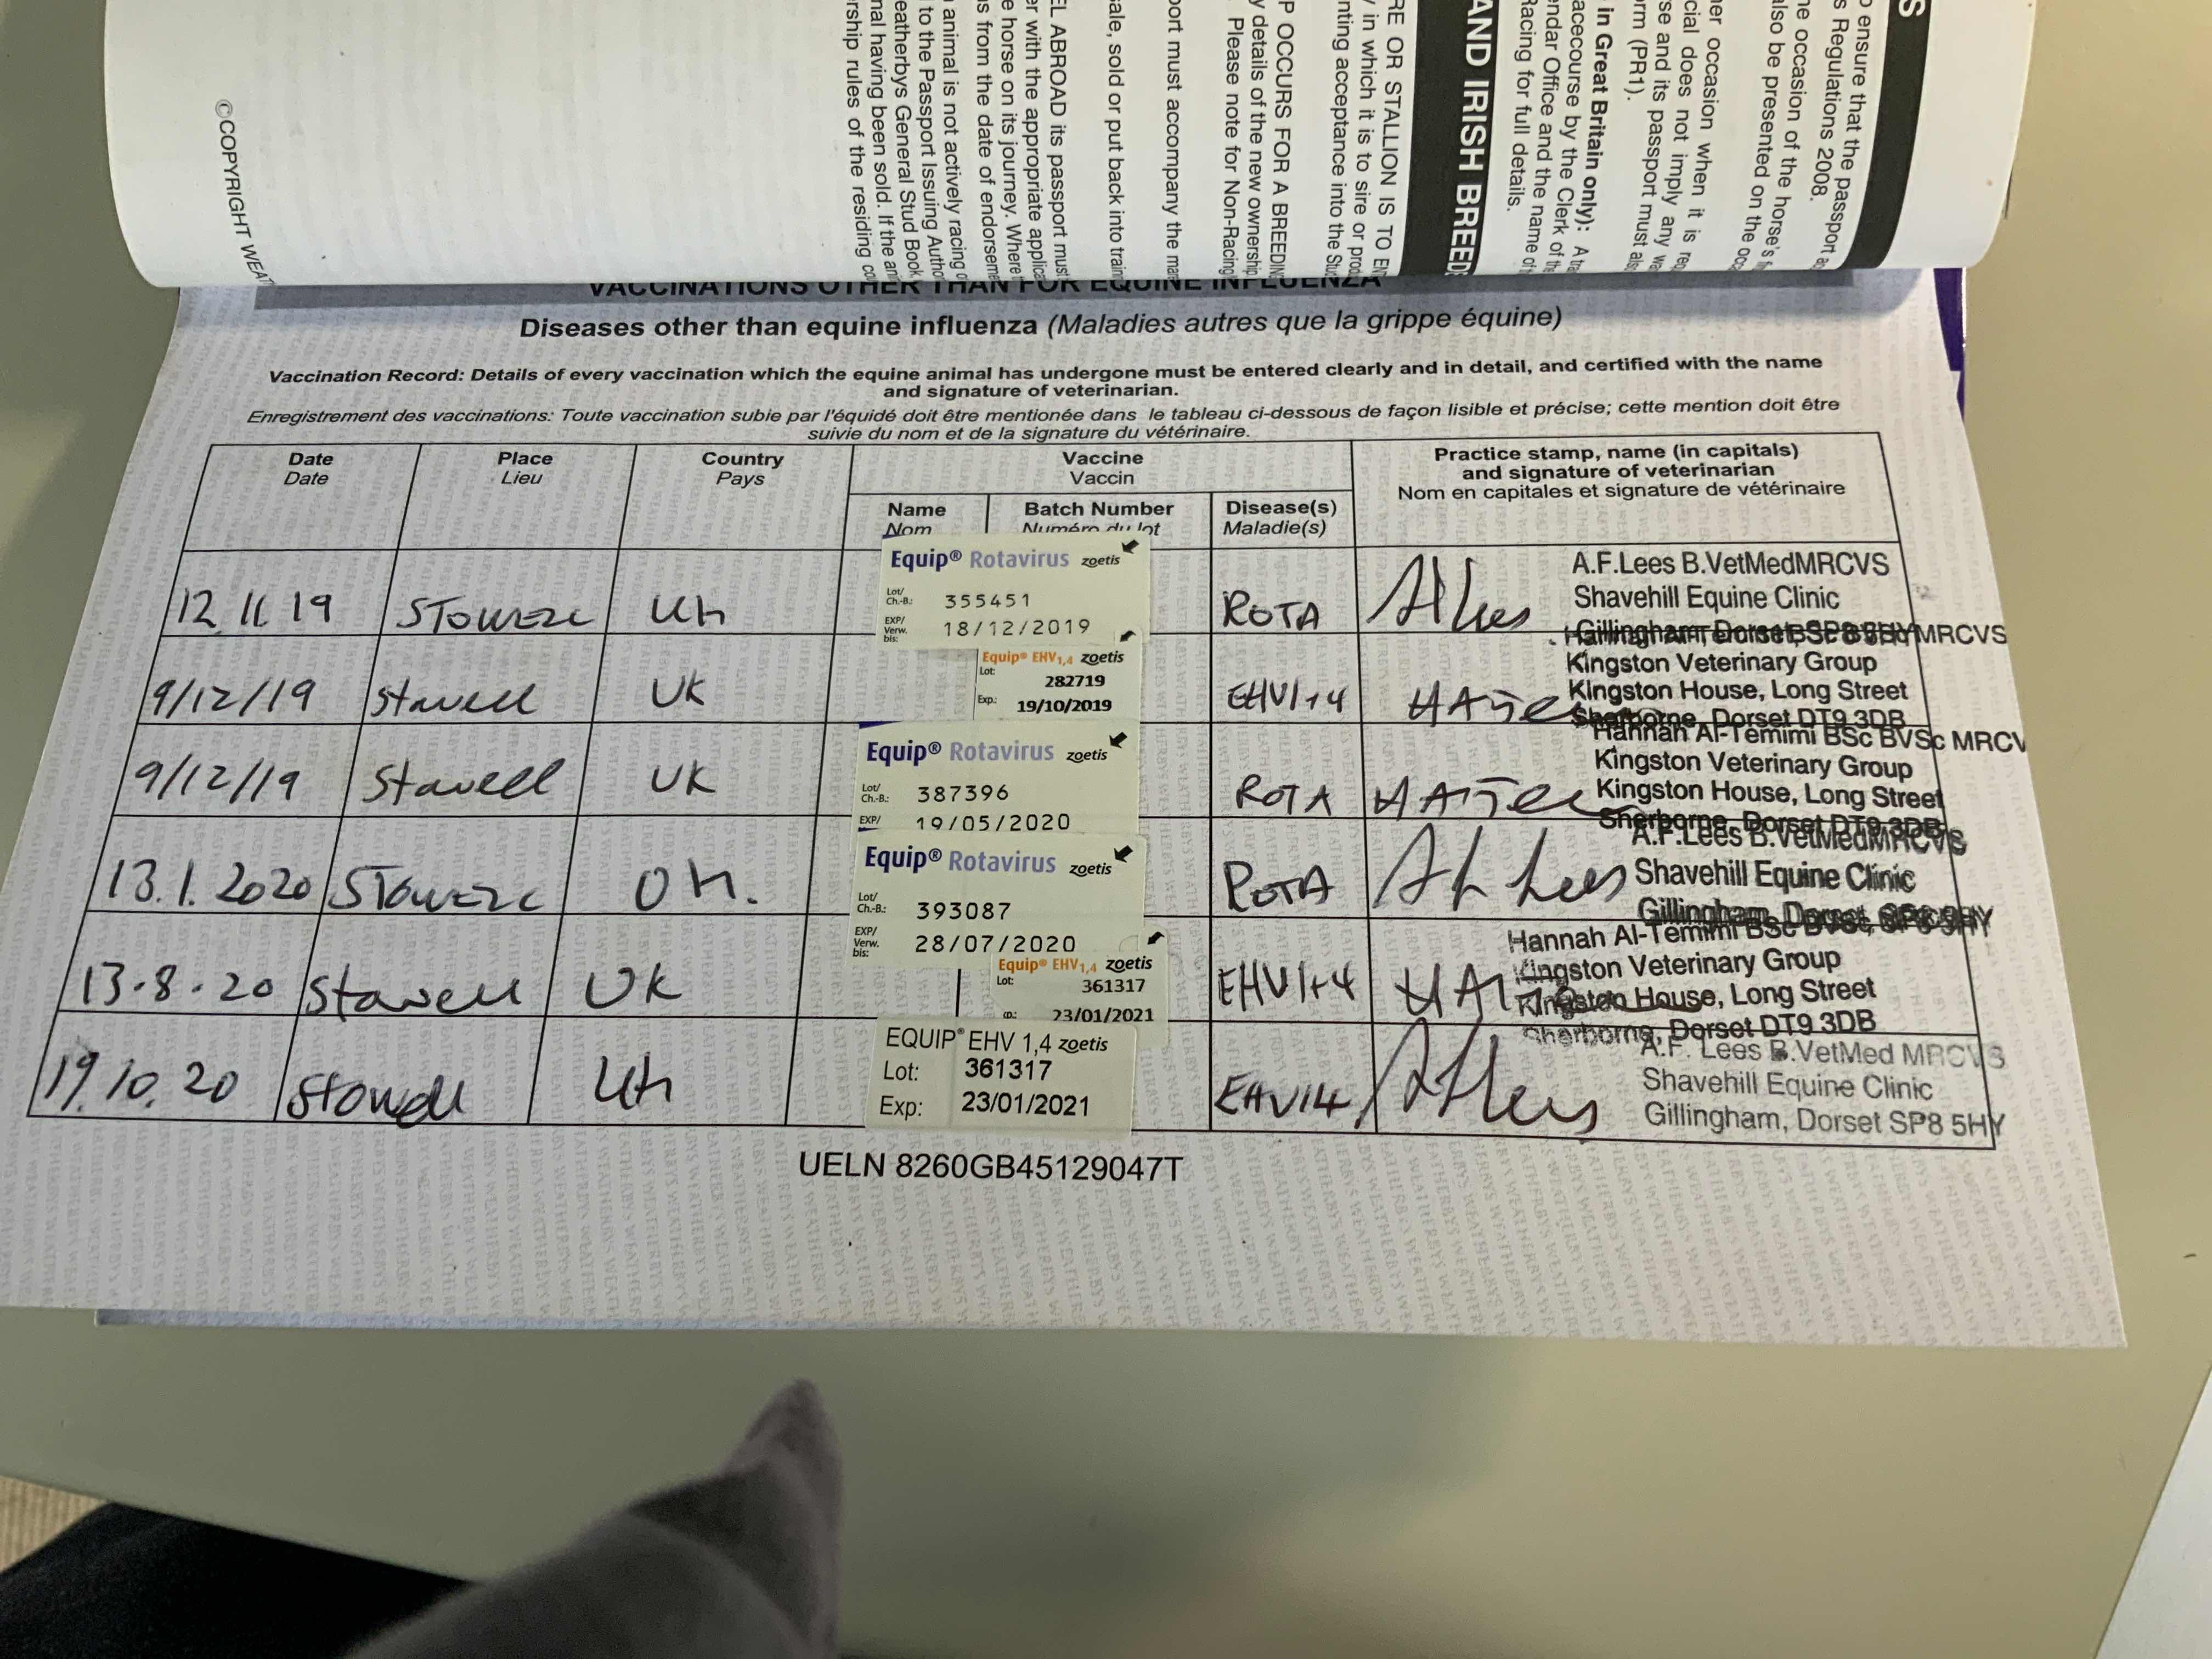 S
o ensure that the passport
s Regulations 2008.
he occasion of the horse's
also be presented on the
her occasion when it is
cial does not imply any
rse and its passport must
orm (PR1).
in Great Britain only): A
acecourse by the Clerk of
endar Office and the name of
Racing for full details.
AND IRISH BREED
RE OR STALLION IS TO
y in which it is to sire or
nting acceptance into the
P OCCURS FOR A BREEDIN
y details of the new ownership
Please note for Non-Racing
port must accompany the
sale, sold or put back into
EL ABROAD its passport must
er with the appropriate
e horse on its journey. Where
s from the date of
animal is not actively racing
to the Passport Issuing
eatherbys General Stud Book
nal having been sold. If the
rship rules of the residing
©COPYRIGHT WEAT
VACCINATIONS OTHER THAN FOR EQUINE INFLUENZA
Diseases other than equine influenza (Maladies autres que la grippe équine)
Vaccination Record: Details of every vaccination which the equine animal has undergone must be entered clearly and in detail, and certified with the name
and signature of veterinarian.
Enregistrement des vaccinations: Toute vaccination subie par l'équidé doit être mentionée dans le tableau ci-dessous de façon lisible et précise; cette mention doit être
suivie du nom et de la signature du vétérinaire.
Date Place Country Vaccine Practice stamp, name (in capitals)
Date Lieu Pays Vaccin and signature of veterinarian
Nom en capitales et signature de vétérinaire
Name Batch Number Disease(s)
Nom Numéro du lot Maladie(s)
Equip® Rotavirus zoetis
Lot/
Ch.-B.: 355451
EXP/
Verw.
bis: 18/12/2019
12.11.19 STOWELL UK ROTA
A.F.Lees B.VetMedMRCVS
Shavehill Equine Clinic
Gillingham, Dorset SP8 5HY
9/12/19 Stowell UK
Equip® EHV1,4 zoetis
Lot: 282719
Exp.: 19/10/2019
EHV1+4
MRCVS
Kingston Veterinary Group
Kingston House, Long Street
Sherborne, Dorset DT9 3DB
9/12/19 Stowell UK
Equip® Rotavirus zoetis
Lot/
Ch.-B.: 387396
EXP/ 19/05/2020
ROTA
Hannah Al-Temimi BSc BVSc MRCV
Kingston Veterinary Group
Kingston House, Long Street
Sherborne, Dorset DT9 3DB
13.1.2020 STOWELL UK.
Equip® Rotavirus zoetis
Lot/
Ch.-B.: 393087
EXP/
Verw.
bis: 28/07/2020
ROTA
A F Lees
A.F.Lees B.VetMedMRCVS
Shavehill Equine Clinic
Gillingham, Dorset, SP8 5HY
13.8.20 Stowell UK
Equip® EHV1,4 zoetis
Lot: 361317
23/01/2021
EHV1+4
Hannah Al-Temimi BSc BVSc
Kingston Veterinary Group
Kingston House, Long Street
Sherborne, Dorset DT9 3DB
19.10.20 Stowell UK
EQUIP® EHV 1,4 zoetis
Lot: 361317
Exp: 23/01/2021
EHV14
A.F. Lees B.VetMed MRCVS
Shavehill Equine Clinic
Gillingham, Dorset SP8 5HY
UELN 8260GB45129047T